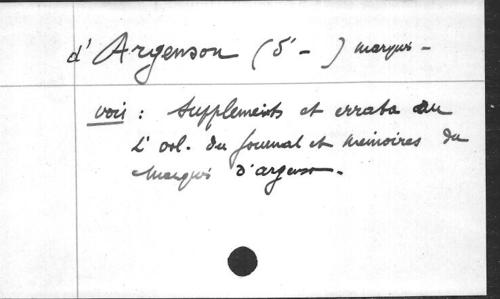 d'Argenson (S' - ) marquis -
voir : Supplements et errata au
2' vol. du Journal et Mémoires du
Marquis d'Argenson.